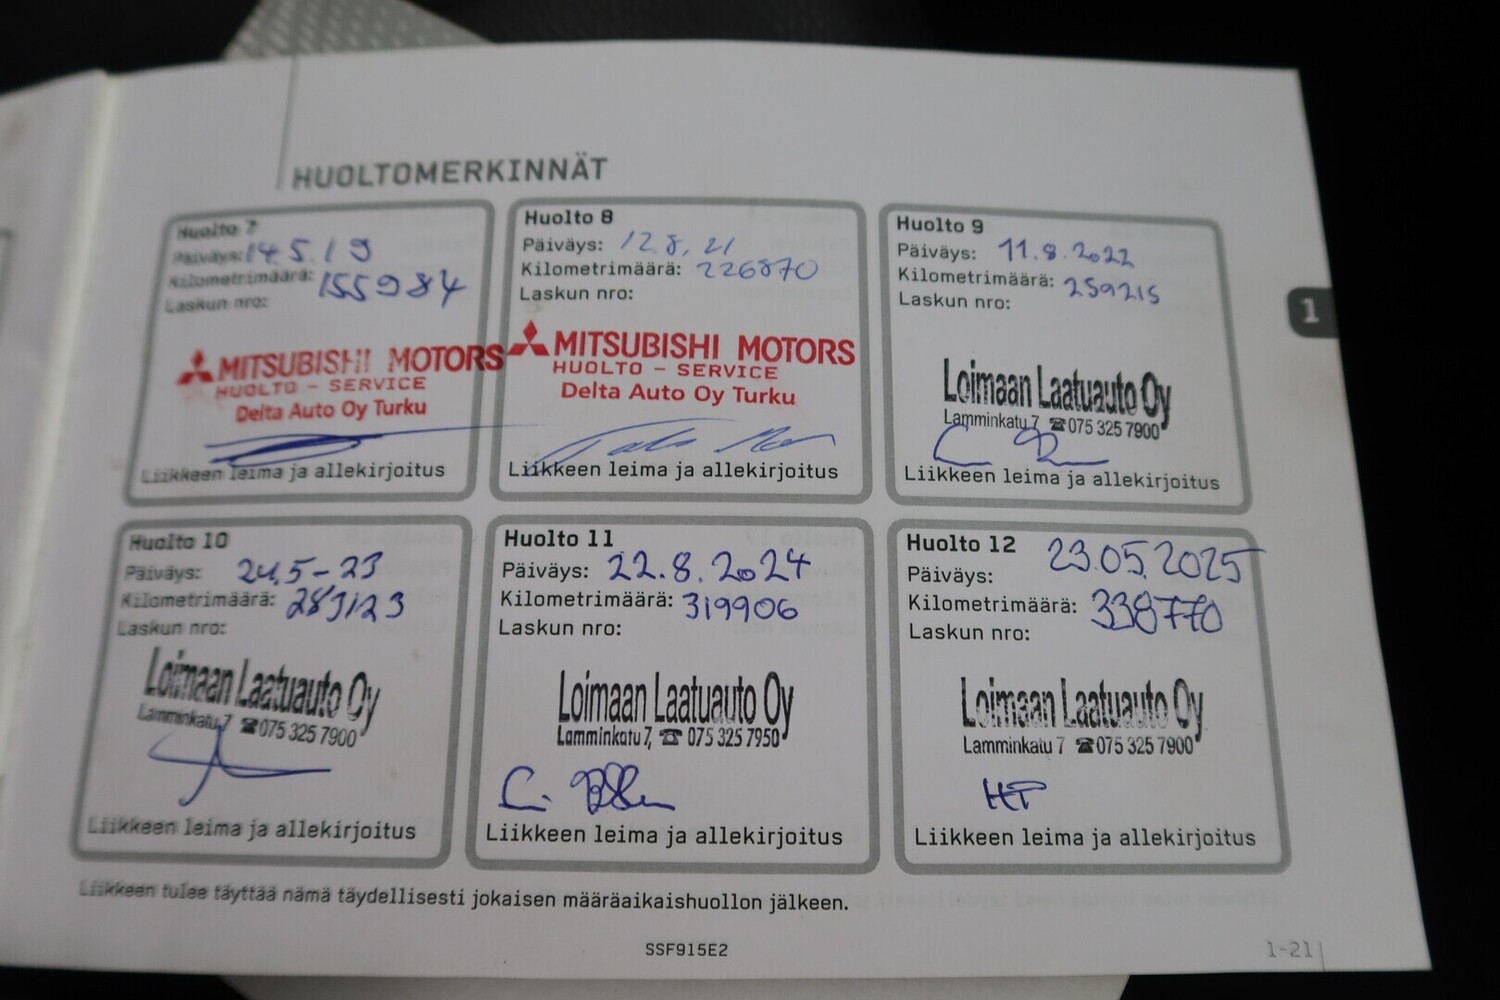 HUOLTOMERKINNÄT
Huolto 7
Päiväys: 14.5.19
Kilometrimäärä: 155984
Laskun nro:
MITSUBISHI MOTORS
HUOLTO - SERVICE
Delta Auto Oy Turku
Liikkeen leima ja allekirjoitus
Huolto 8
Päiväys: 12.8.21
Kilometrimäärä: 226870
Laskun nro:
MITSUBISHI MOTORS
HUOLTO - SERVICE
Delta Auto Oy Turku
Liikkeen leima ja allekirjoitus
Huolto 9
Päiväys: 11.8.2022
Kilometrimäärä: 259215
Laskun nro:
Loimaan Laatuauto Oy
Lamminkatu 7 ☎075 325 7900
Liikkeen leima ja allekirjoitus
Huolto 10
Päiväys: 24.5-23
Kilometrimäärä: 283123
Laskun nro:
Loimaan Laatuauto Oy
Lamminkatu 7 ☎075 325 7900
Liikkeen leima ja allekirjoitus
Huolto 11
Päiväys: 22.8.2024
Kilometrimäärä: 319906
Laskun nro:
Loimaan Laatuauto Oy
Lamminkatu 7, ☎ 075 325 7950
Liikkeen leima ja allekirjoitus
Huolto 12
Päiväys: 23.05.2025
Kilometrimäärä: 338770
Laskun nro:
Loimaan Laatuauto Oy
Lamminkatu 7 ☎075 325 7900
HP
Liikkeen leima ja allekirjoitus
Liikkeen tulee täyttää nämä täydellisesti jokaisen määräaikaishuollon jälkeen.
SSF915E2
1-21
1